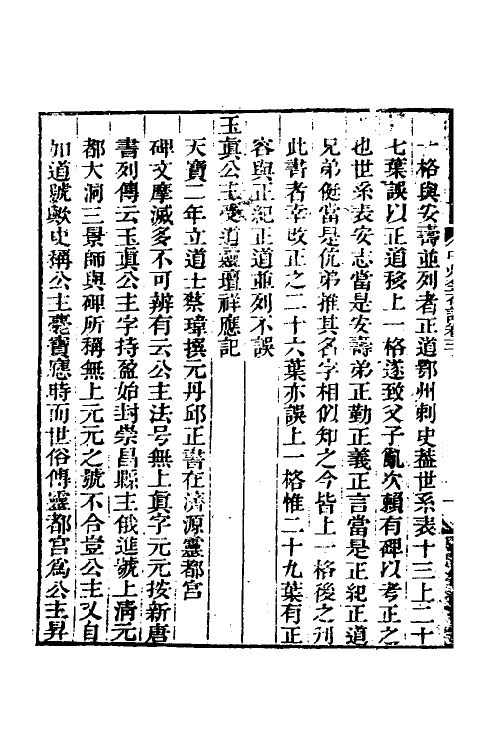 一格與安壽並列者正道鄂州刺史葢世系表十三上二十
七葉誤以正道移上一格遂致父子亂次賴有碑以考正之
也世系表安志當是安壽弟正勤正義正言當是正紀正道
兄弟侹當是伉弟推其名字相似知之今皆上一格後之刋
此書者幸改正之二十六葉亦誤上一格惟二十九葉有正
容與正紀正道並列不誤
玉眞公主受道靈壇祥應記
天寶二年立道士蔡瑋撰元丹邱正書在濟源靈都宮
碑文摩滅多不可辨有云公主法号無上眞字元元按新唐
書列傳云玉眞公主字持盈始封崇昌縣主俄進號上淸元
都大洞三景師與碑所稱無上元元之號不合豈公主又自
加道號歟史稱公主薨寶應時而世俗傳靈都宮爲公主昇